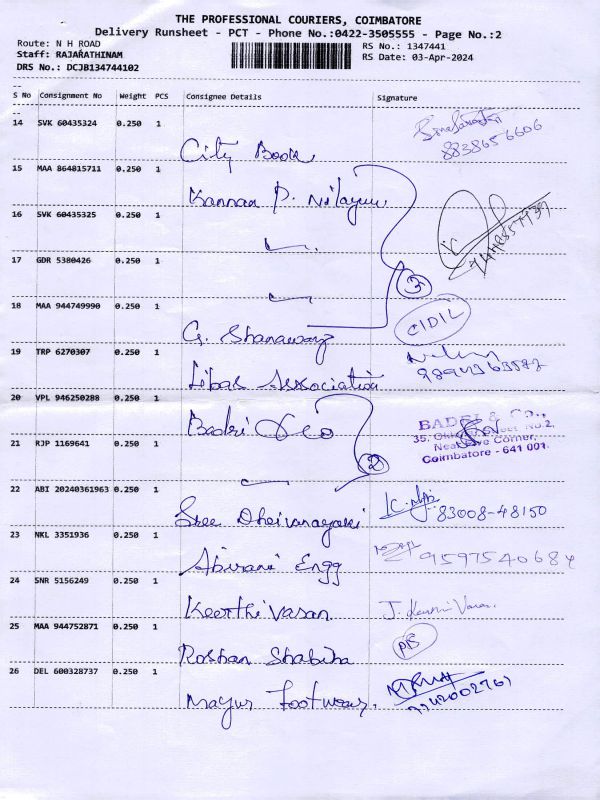 THE PROFESSIONAL COURIERS, COIMBATORE
Delivery Runsheet - PCT - Phone No.:0422-3505555 - Page No.:2
Route: N H ROAD
Staff: RAJARATHINAM
DRS No.: DCJB134744102
RS No.: 1347441
RS Date: 03-Apr-2024
S No Consignment No Weight PCS Consignee Details Signature
14 SVK 60435324 0.250 1 City Book
8838656606
15 MAA 864815711 0.250 1 Kannan P. Nilayam
16 SVK 60435325 0.250 1
17 GDR 5380426 0.250 1
3
18 MAA 944749990 0.250 1 G. Shanawaz
CIDIL
19 TRP 6270307 0.250 1 Libas Association
20 VPL 946250288 0.250 1 Badri & Co
BADRI & CO.,
No.2,
Corner,
Coimbatore - 641 001.
21 RJP 1169641 0.250 1
2
22 ABI 20240361963 0.250 1 Sree Dheivanayaki
83008-48150
23 NKL 3351936 0.250 1 Abirami Engg
9597540684
24 SNR 5156249 0.250 1 Keerthi Vasan
25 MAA 944752871 0.250 1 Roshan Shabiha
26 DEL 600328737 0.250 1 Mayur Footwear.